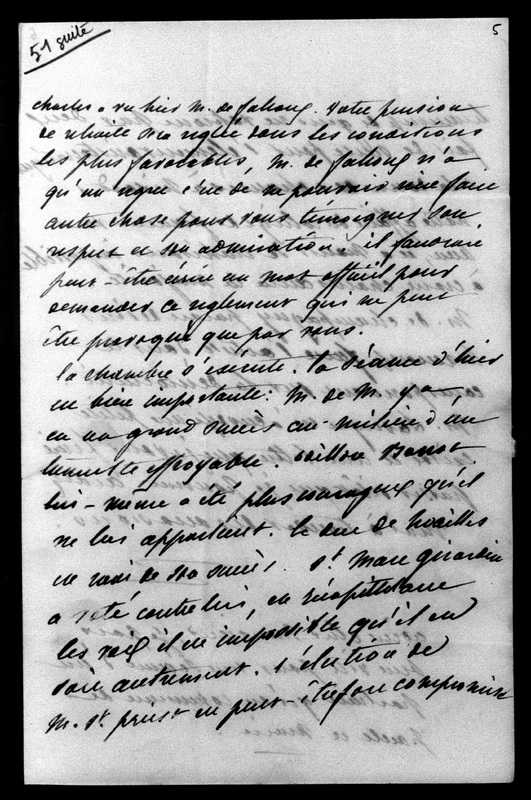 51 suite
5
Charles a vu hier M. de Goulard. Votre pension
de retraite sera réglée dans les conditions
les plus favorables, M. de Goulard n'a
qu'un regret c'est de ne pouvoir rien faire
autre chose pour vous témoigner son
respect et son admiration. il faudrait
peut-être écrire un mot officiel pour
demander ce reglement qui ne peut
être provoqué que par vous.
la chambre s'exécute. la séance d'hier
est bien importante: M. de M. y a
eu un grand succès au milieu d'un
tumulte effroyable. Odillon Barrot
lui-même a été plus courageux qu'il
ne lui appartient. le duc de Noailles
est ravi de son succès. St. Marc Girardin
a voté contre lui, en récapitulant
les voix il est impossible qu'il en
soit autrement. l'élection de
M. St. Priest est peut-être fort compromise